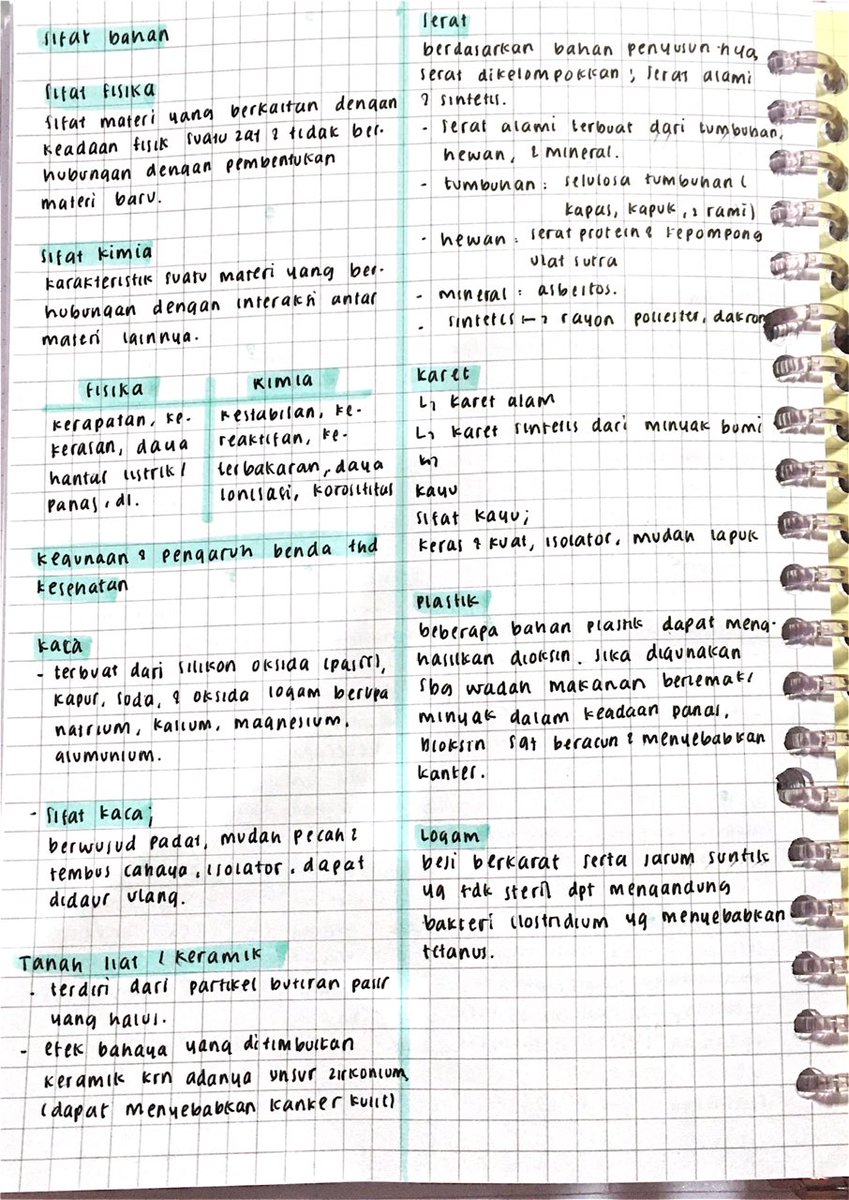 sifat bahan
sifat fisika
sifat materi yang berkaitan dengan
keadaan fisik suatu zat & tidak ber-
hubungan dengan pembentukan
materi baru.
sifat kimia
karakteristik suatu materi yang ber-
hubungan dengan interaksi antar
materi lainnya.
fisika
kerapatan, ke-
kerasan, daya
hantar listrik/
panas, dl.
kimia
kestabilan, ke-
reaktifan, ke-
terbakaran, daya
ionisasi, korosititas
kegunaan & pengaruh benda thd
kesehatan
kaca
- terbuat dari silikon oksida (pasir),
kapur, soda, & oksida logam berupa
natrium, kalium, magnesium,
alumunium.
- sifat kaca;
berwujud padat, mudah pecah &
tembus cahaya, isolator, dapat
didaur ulang.
Tanah liat / keramik
- terdiri dari partikel butiran pasir
yang halus.
- efek bahaya yang ditimbulkan
keramik krn adanya unsur zirkonium,
(dapat menyebabkan kanker kulit)
serat
berdasarkan bahan penyusun-nya,
serat dikelompokkan; serat alami
& sintetis.
- serat alami terbuat dari tumbuhan,
hewan, & mineral.
- tumbuhan: selulosa tumbuhan (
kapas, kapuk, & rami)
- hewan: serat protein & kepompong
ulat sutra
- mineral: asbestos.
- sintetis → rayon poliester, dakron
karet
↳ karet alam
↳ karet sintetis dari minyak bumi
↳
kayu
sifat kayu;
keras & kuat, isolator, mudah lapuk
plastik
beberapa bahan plastik dapat meng-
hasilkan dioksin. jika digunakan
sbg wadah makanan berlemak/
minyak dalam keadaan panas.
Dioksin sgt beracun & menyebabkan
kanker.
Logam
besi berkarat serta jarum suntik
yg tdk steril dpt mengandung
bakteri clostridium yg menyebabkan
tetanus.